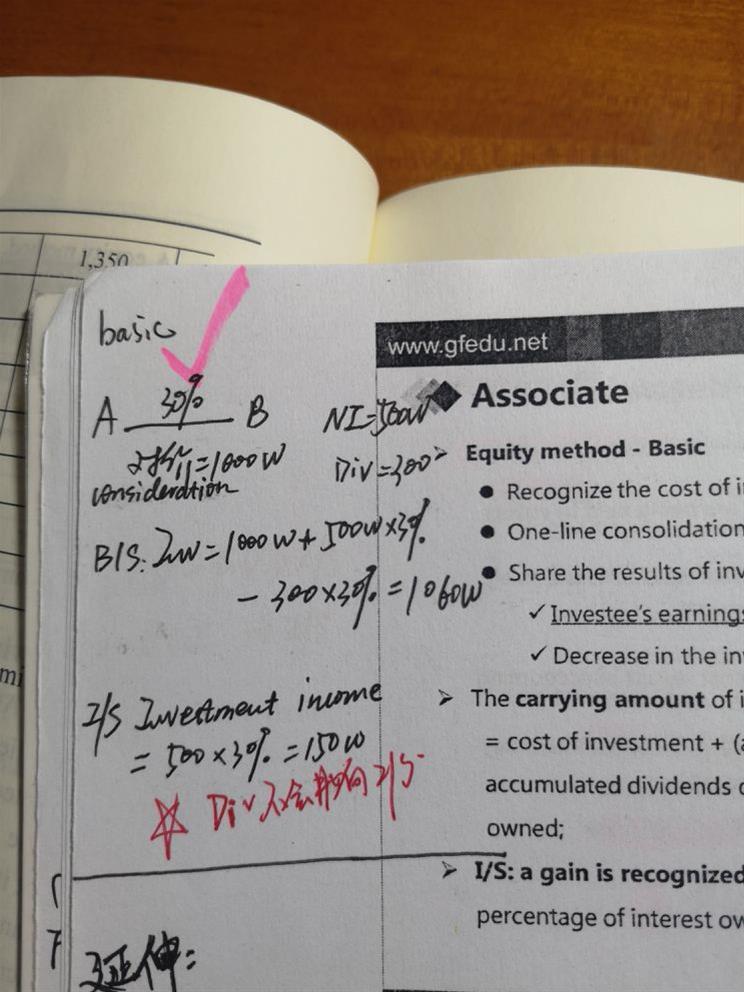 1,350
basic
www.gfedu.net
Associate
A 30% B NI=500W
对价=1000W Div=300
consideration
Equity method - Basic
Recognize the cost of i
B/S: Inv=1000W+500W×30%
One-line consolidation
-300×30%=1060W
Share the results of inv
✓ Investee's earnings
✓ Decrease in the inv
I/S Investment income
=500×30%=150W
The carrying amount of i
= cost of investment + (a
☆ Div不会影响I/S
accumulated dividends o
owned;
I/S: a gain is recognized
percentage of interest ow
延伸: